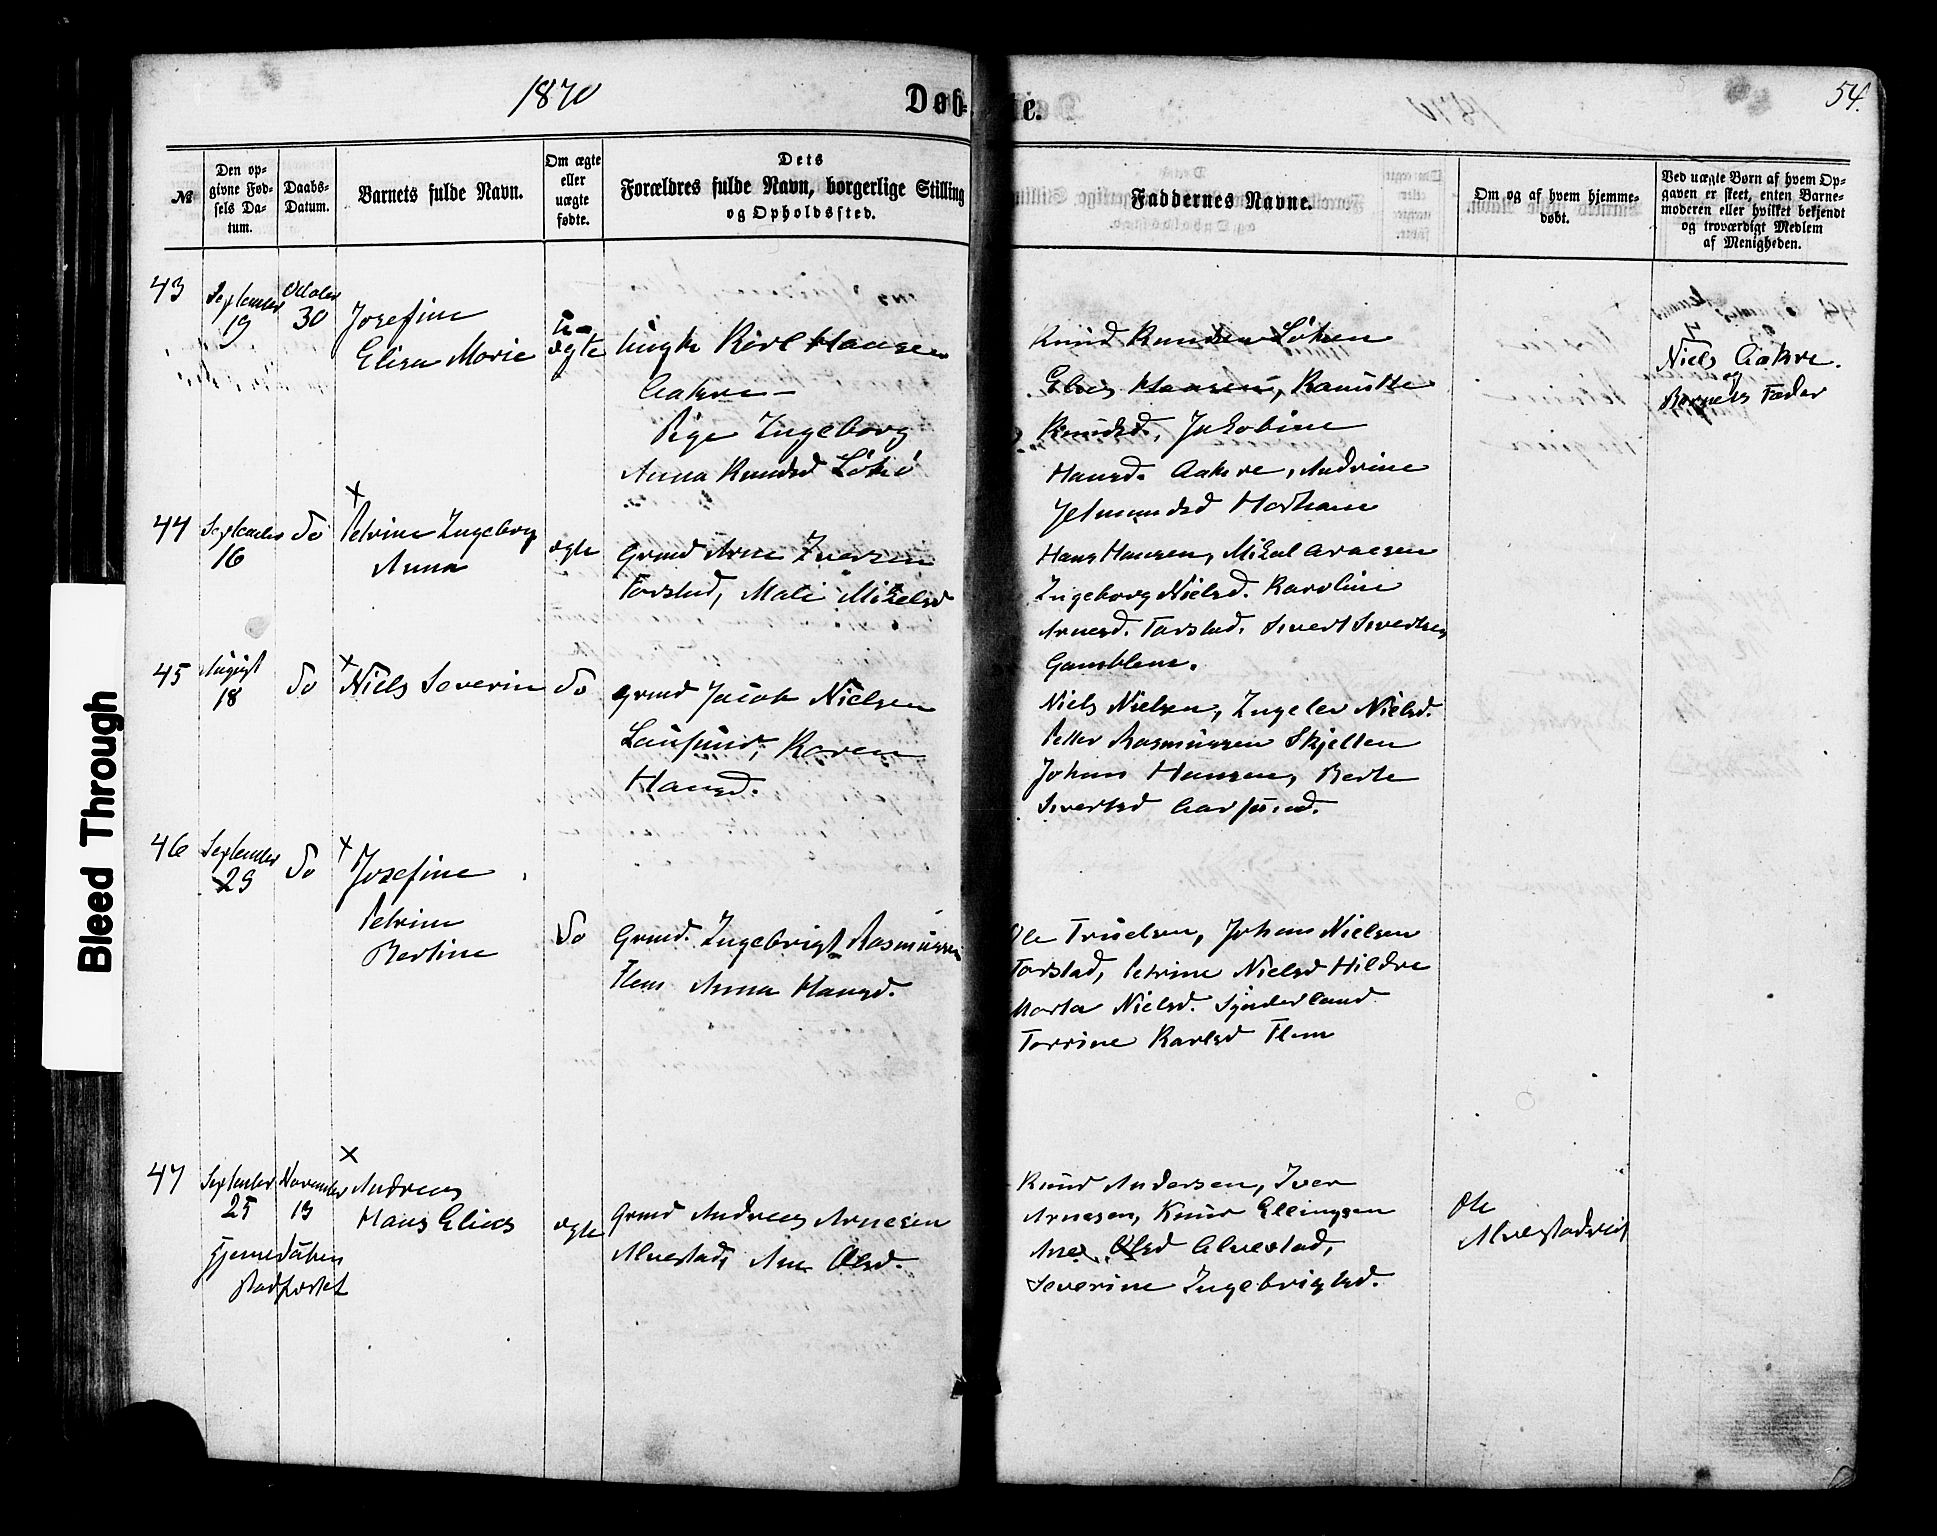 1870
Døb-
te.
54.
№
Den op-
givne Fød-
sels Da-
tum.
Daabs-
Datum.
Barnets fulde Navn.
Om ægte
eller
uægte
fødte.
Dets
Forældres fulde Navn, borgerlige Stilling
og Opholdssted.
Faddernes Navne.
Om og af hvem hjemme-
døbt.
Ved uægte Børn af hvem Op-
gaven er skeet, enten Barne-
moderen eller hvilket bekjendt
og troværdigt Medlem
af Menigheden.
43
September
19
October
30
Josefine
Elisa Marie
u-
ægte
Ungk Karl Hansen
Aakre
Pige Ingeborg
Anna Knudsd
Knud Knudsen Løken
Elias Hansen, Kanutte
Knudsd, Jakobine
Hansd. Aakre, Andrine
Jetmundsd
Niels Aakre.
og
Barnets Fader
44
September
16
do
×
Petrine Ingeborg
Anna
ægte
Grmd Arne Iversen
Tarstad, Mali Mikelsd
Hans Hansen, Mikal Arnesen
Ingeborg Nielsd. Karoline
Arnesd. Tarstad. Sivert Sivertsen
Gamblem.
45
August
18
do
×
Niels Severin
do
Grmd Jacob Nielsen
Karen
Hansd.
Niels Nielsen, Nielsd.
Petter Rasmussen Skjelten
Johan Hansen, Berte
Sivertsd
46
September
29
do
×
Josefine
Petrine
Bertine
do
Grmd. Ingebrigt Rasmussen
Flem Anna Hansd.
Ole Truelsen, Johan Nielsen
Tarstad, Petrine Nielsd Hildre
Marta Nielsd. Synderland
Torrine Karlsd Flem
47
September
25
November
13
×
Andreas
Hans Elias
ægte
Grmd Andreas Arnesen
Alvestad, Ane Olsd.
Knud Andersen, Iver
Arnesen, Knud Ellingsen
Ane Olsd Alvestad,
Severine Ingebrigtsd.
Ole
Hjemedåben
Stadfæstet
Bleed Through